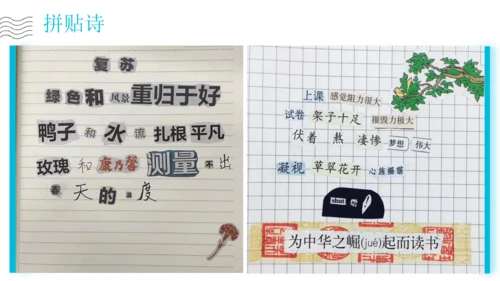 拼贴诗
复苏
绿色和风景重归于好
鸭子和水流扎根平凡
玫瑰和康乃馨测量不出
春天的温度
上课 感觉阻力很大
试卷 架子十足 摧毁力极大
伏着 熬 凄惨 梦想 伟大
凝视 草翠花开 心旌摇曳
shut
为中华之崛(jué)起而读书